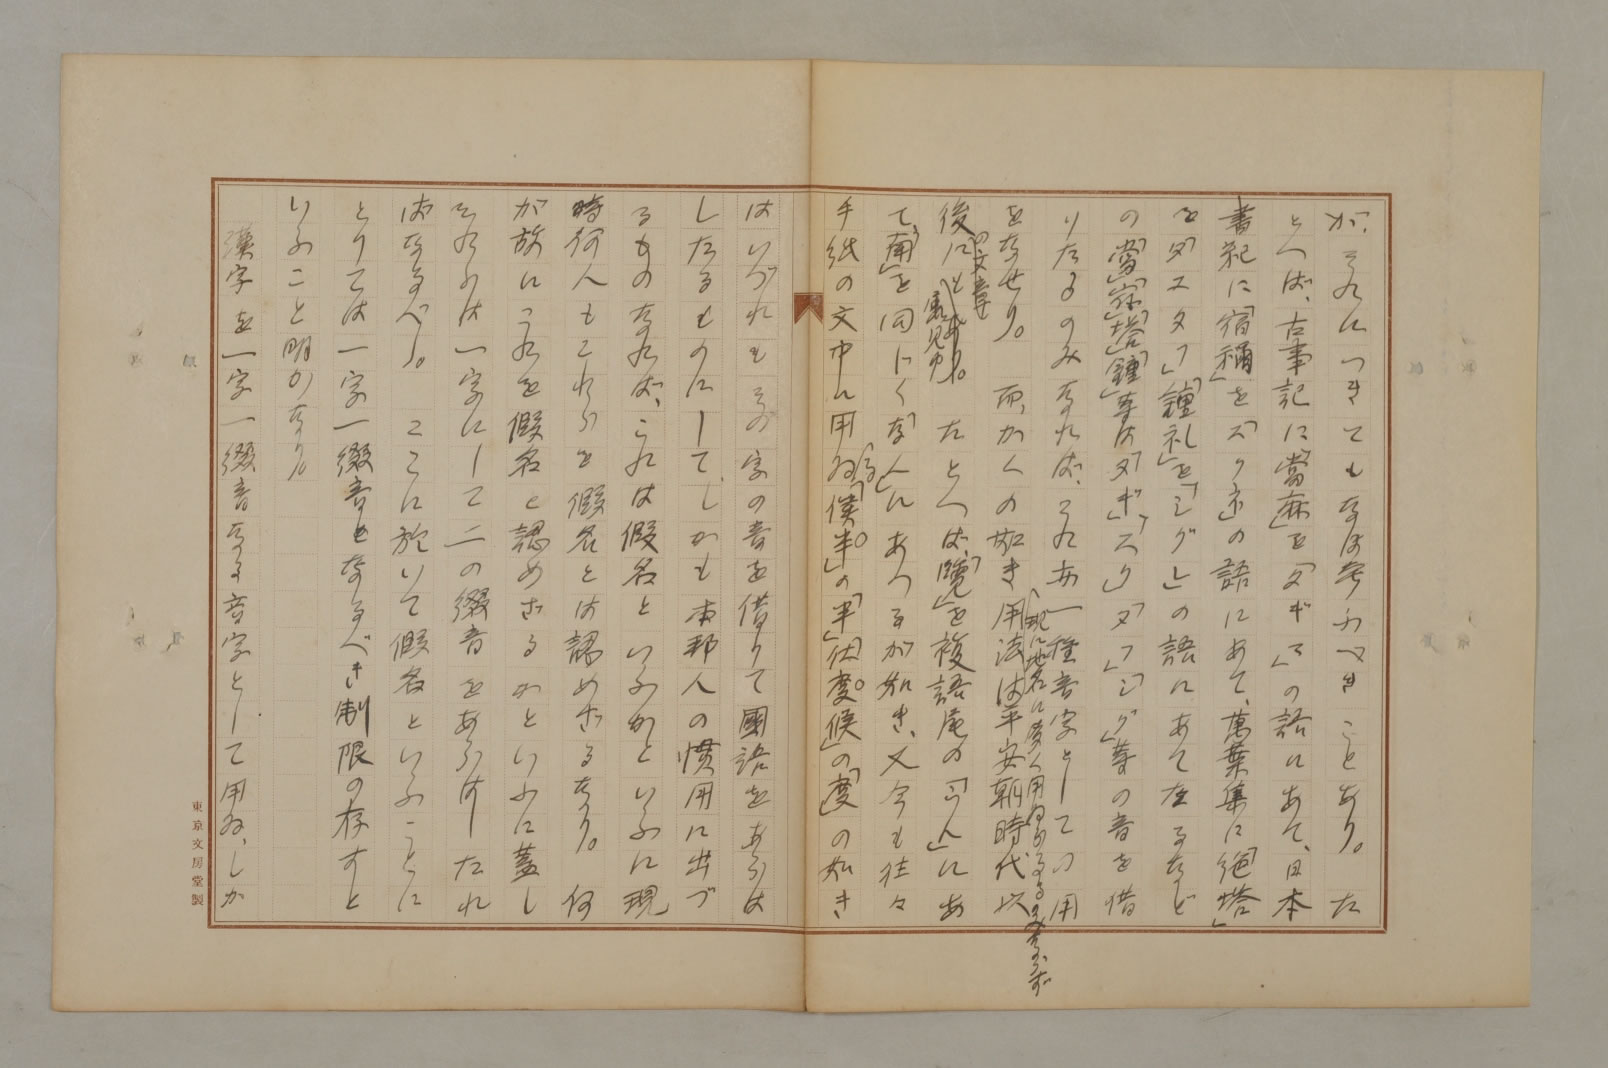 が、それにつきてもなほ考ふべきことあり。た
とへば、古事記に「當麻」を「タギマ」の語にあて、日本
書紀に「宿禰」を「スクネ」の語にあて、萬葉集に「絶塔」
を「タエタフ」「鍾礼」を「シグレ」の語にあてたるなど
の「當」「宿」「塔」「鍾」等は「タギ」「スク」「タフ」「シグ」等の音を借
りたるのみなれば、これ亦一種音字としての用
をなせり。而、かくの如き用法は平安朝時代以
現に地名に多く用ゐらるるのみならず
後の文章にも屡見ゆ。たとへば、「覽」を複語尾の「らん」にあ
て、「南」を同じく「なん」にあつるが如き、又今も往々
手紙の文中に用ゐる「僕半」の「半」「仕度候」の「度」の如き
はいづれもその字の音を借りて國語をあらは
したるものにして、しかも本邦人の慣用に出づ
るものなれば、これは假名といふかといふに現
時何人もこれらを假名とは認めざるなり。何
が故にこれを假名と認めざるかといふに蓋し
それらは一字にして二の綴音をあらはしたれ
ばなるべし。ここに於いて假名といふことに
とりては一字一綴音となるべき制限の存すと
いふこと明かなり。
漢字を一字一綴音なる音字として用ゐ、しか
東京文房堂製